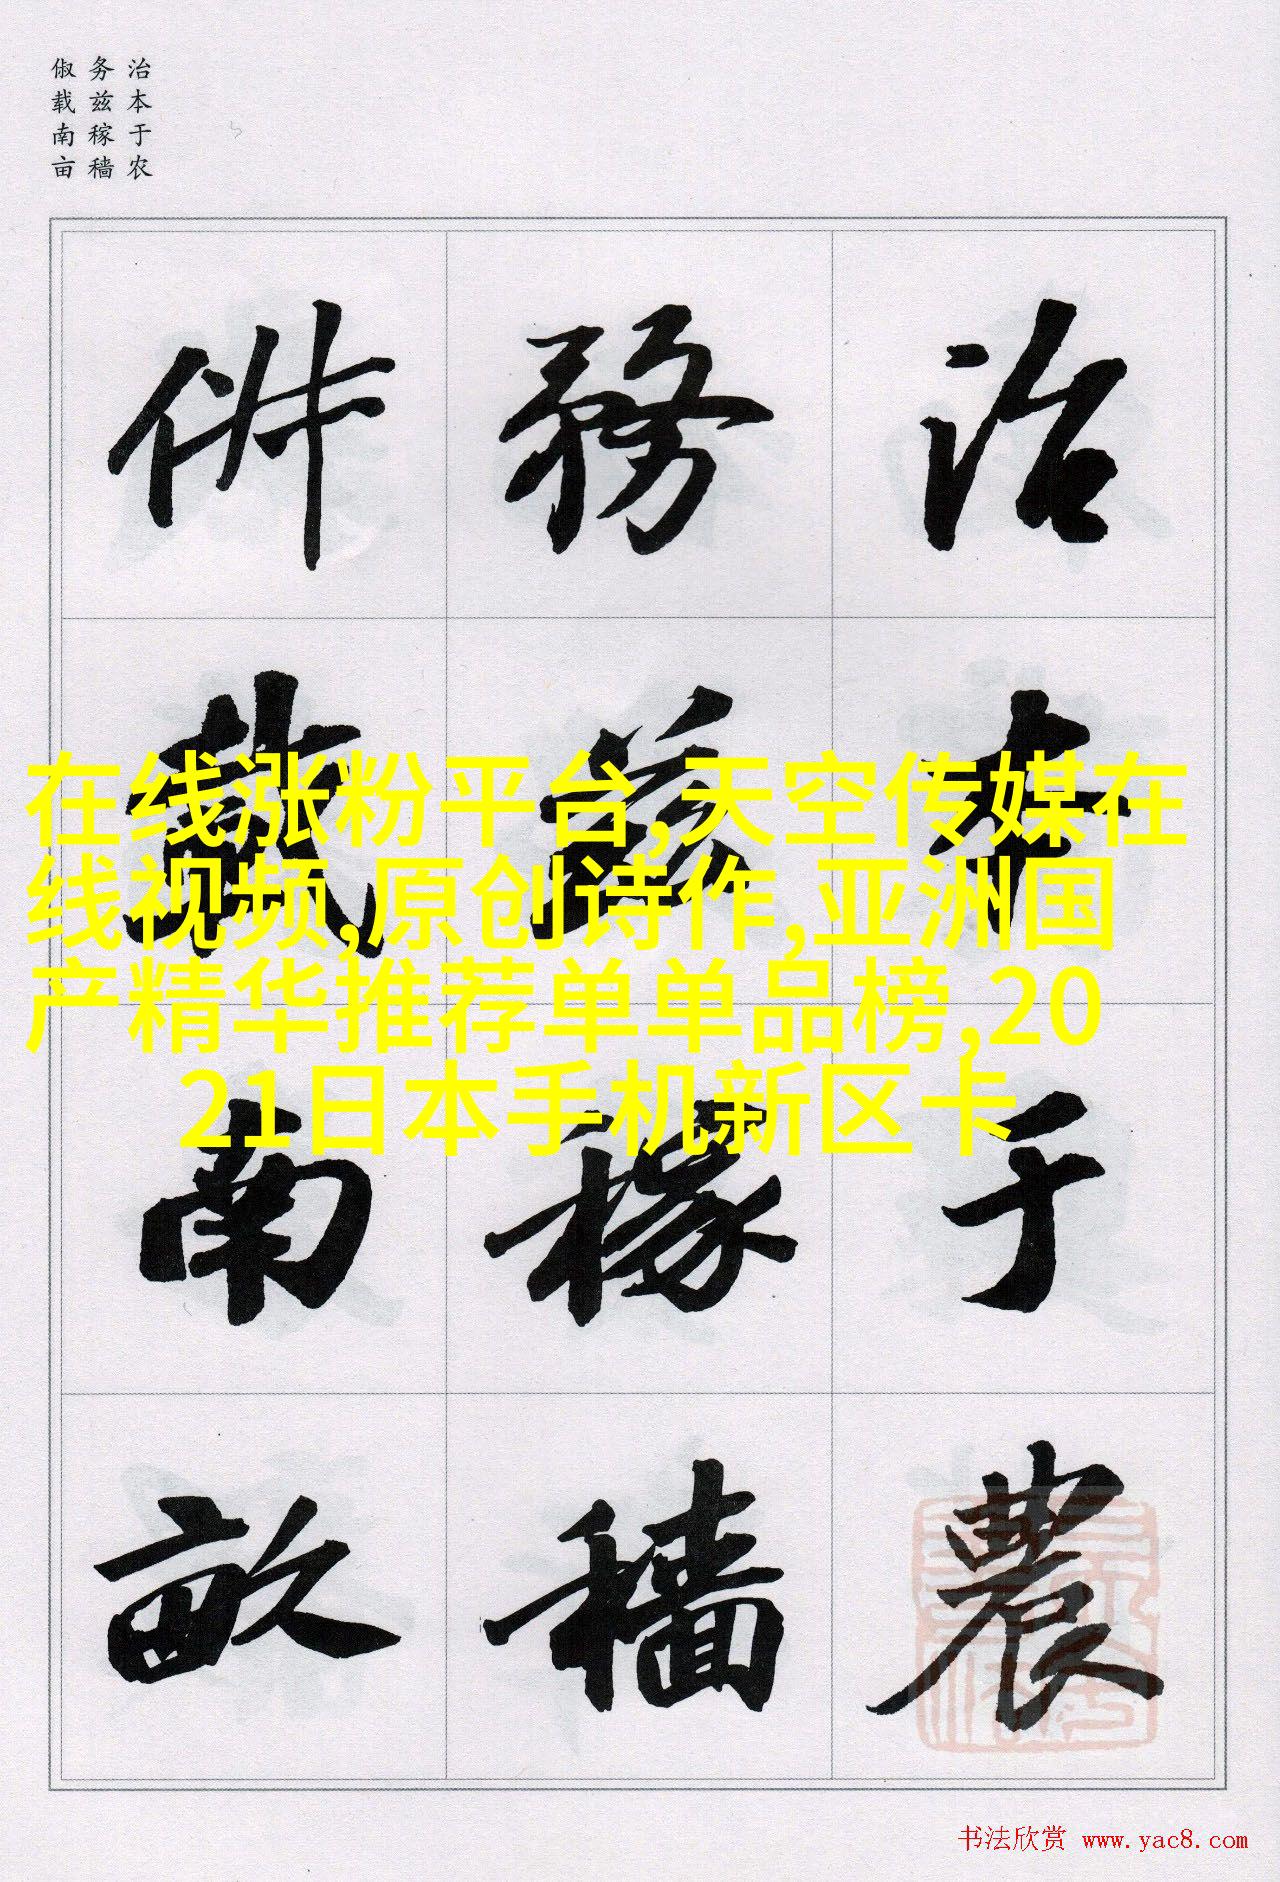 治本于农
务兹稼穑
俶载南亩
治本于農
務茲稼穡
俶載南畝
在线涨粉平台,天空传媒在
线视频,原创诗作,亚洲国
产精华推荐单单品榜,20
21日本手机新区卡
书法欣赏 www.yac8.com